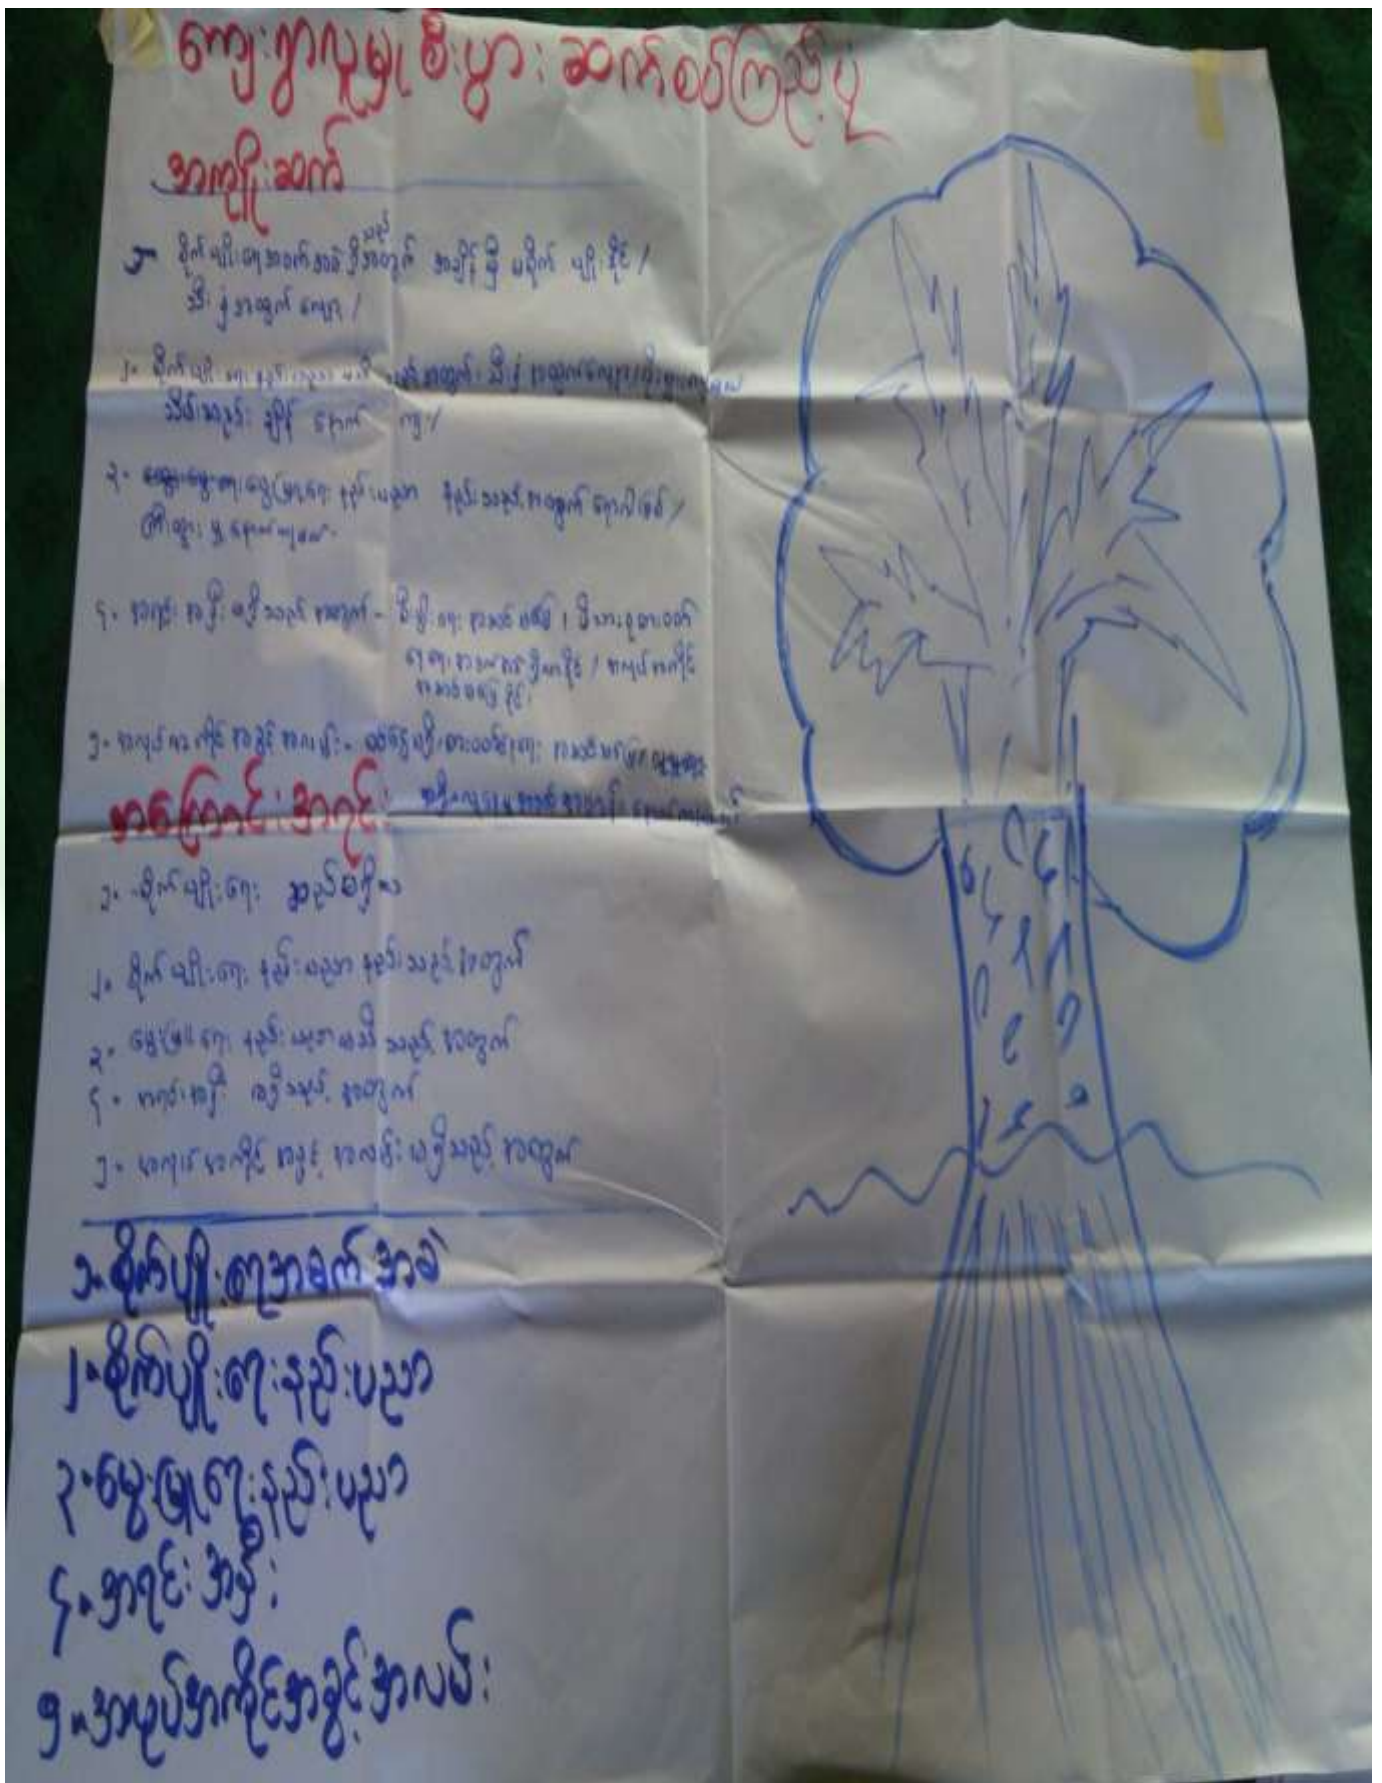 ကျေးရွာလူမှုစီးပွားဆက်စပ်ကြည့်ပုံ
အကျိုးဆက်
၁။ စိုက်ပျိုးရေအခက်အခဲရှိသည့်အတွက် အချိန်မှီ မစိုက်ပျိုးနိုင်/
သီးနှံအထွက်လျော့/
၂။ စိုက်ပျိုးရေးနည်းပညာ မသိ အတွက် သီးနှံအထွက်လျော့/
သိမ်းဆည်းချိန် နောက်ကျ/
၃။ မွေးမြူရေးနည်းပညာ နည်းသည့်အတွက် ရောဂါဖြစ်/
ကြီးထွားမှုနောက်ကျမယ်-
၄။ အရင်းအနှီးမရှိသည့်အတွက် - စီးပွါးရေးအဆင်မပြေ၊ မိသားစုစားဝတ်
နေရေးအခက်အခဲရှိလာနိုင်/ အလုပ်အကိုင်
အဆင်မပြေနိုင်၊
၅။ အလုပ်အကိုင်အခွင့်အလမ်း-
အကြောင်းအရင်း
၁။ စိုက်ပျိုးရေး ဆည်မရှိ
၂။ စိုက်ပျိုးရေးနည်းပညာ နည်းသည့်အတွက်
၃။ မွေးမြူရေးနည်းပညာမသိသည့်အတွက်
၄။ အရင်းအနှီး မရှိသည့်အတွက်
၅။ အလုပ်အကိုင်အခွင့်အလမ်းမရှိသည့်အတွက်
၁။ စိုက်ပျိုးရေအခက်အခဲ
၂။ စိုက်ပျိုးရေးနည်းပညာ
၃။ မွေးမြူရေးနည်းပညာ
၄။ အရင်းအနှီး
၅။ အလုပ်အကိုင်အခွင့်အလမ်း